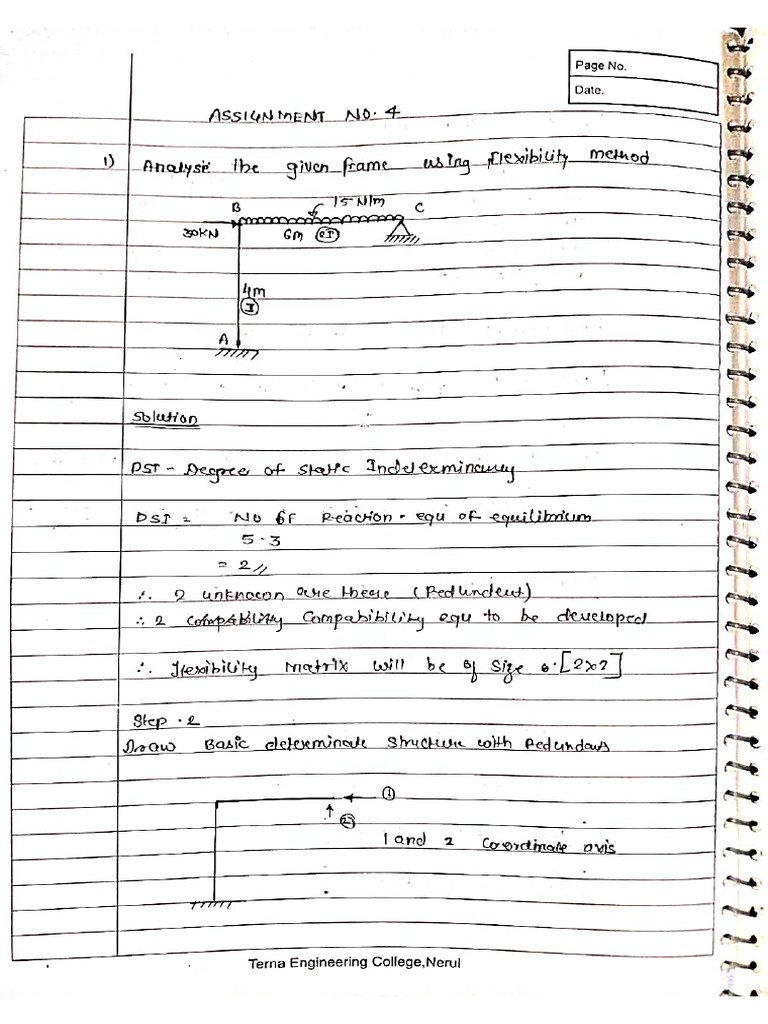 Page No.
Date.
ASSIGNMENT NO. 4
1) Analyse the given frame using flexibility method
15 N/m
B C
30KN 6m 2I
4m
I
A
Solution
DSI - Degree of static Indeterminancy
DSI = No of Reaction - equ of equilibrium
5 - 3
= 2 //
∴ 2 unknown are there (Redundent)
∴ 2 Compability Compabibility equ to be developed
∴ Flexibility Matrix will be of size [2x2]
Step - 2
Draw Basic determinate structure with Redundans
1
2
1 and 2 Coordinate axis
Terna Engineering College,Nerul